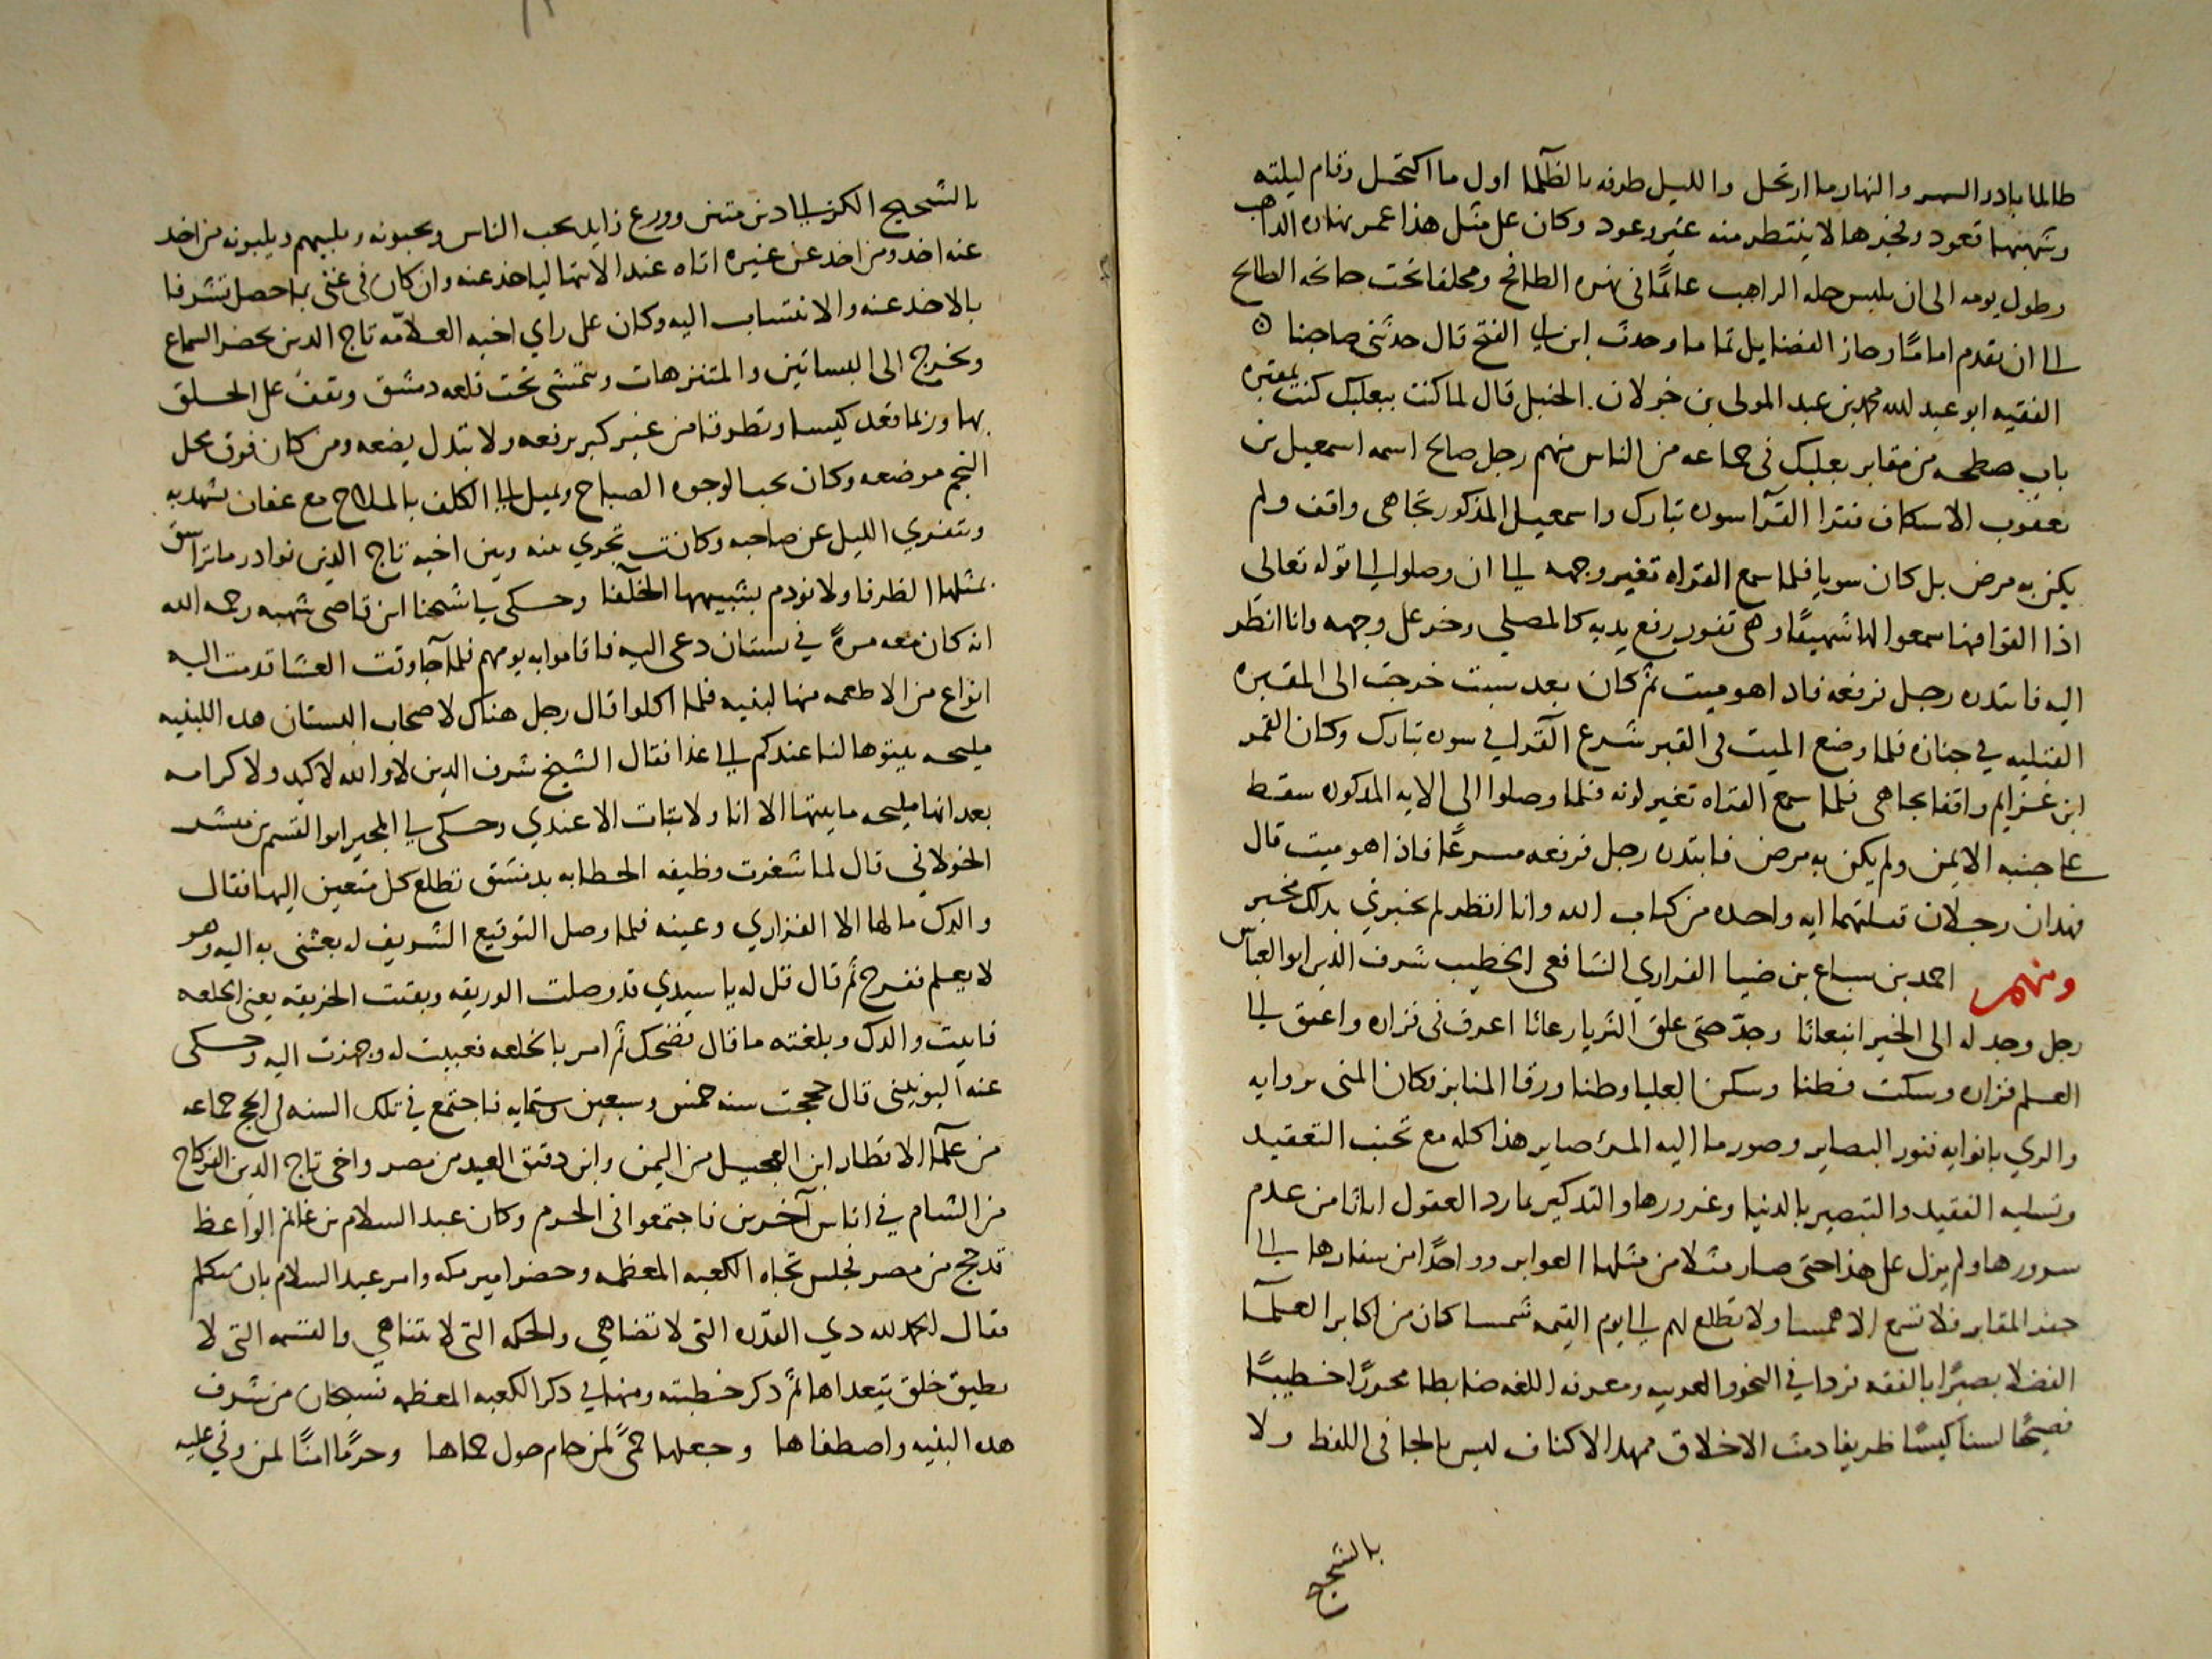 طالما بادر السهر والنهار ما ارتحل والليل طرفه بالظلما اول ما اكتحل وقام ليلته
تعود وفجرها لا ينتظر منه غير وعود وكان على مثل هذا عمر نهاره الداهب
وطول يومه الى ان يلبس حله الراهب عالما في نهره الطافح ومحلقا تحت جانحه الطالح
الى ان تقدم اماما وحاز الفضايل تماما وحدث ابن ابي الفتح قال حدثني صاحبنا
الفقيه ابو عبد لله محمد بن عبد المولى بن خولان الحنبلي قال لما كنت ببعلبك كنت بمقبره
باب سطحه من مقابر بعلبك في جماعه من الناس منهم رجل صالح اسمه اسمعيل بن
يعقوب الاسكاف فقرا القرا سوره تبارك واسمعيل المذكور تجاهي واقف ولم
يكن به مرض بل كان سويا فلما سمع القراه تغير وجهه الى ان وصلوا الى قوله تعالى
اذا القوا فيها سمعوا لها شهيقا وهي تفور رفع يديه كالمصلي وخر على وجهه وانا انظر
اليه فابتدره رجل فرفعه فاذا هو ميت ثم كان بعد سبت خرجت الى المقبره
القبليه في جنازه فلما وضع الميت في القبر شرع القرا في سوره تبارك وكان القمر
ابن غنايم واقفا تجاهي فلما سمع القراه تغير لونه فلما وصلوا الى الايه المذكوره سقط
على جنبه الايمن ولم يكن به مرض فابتدره رجل فرفعه مسرعا فاذا هو ميت قال
فهذان رجلان قتلتهما ايه واحده من كتاب الله وانا انظر لم يخبرني بذلك مخبر
ومنهم احمد بن سباع بن ضيا الفزاري الشافعي الخطيب شرف الدين ابو العباس
رجل وجد له الى الخير انبعاثا وجد حتى علق الثريا رعاثا اعرق في فزاره واعتق الى
العلم فزاره وسكت فطنا وسكن العليا وطنا ورقا المنابر فكان المنى بروايه
والري بانوايه فنور البصاير وصور ما اليه المرء صاير هذا كله مع تجنب التعقيد
وتسليه الفقيد والتبصير بالدنيا وغرورها والتذكير بما رد العقول اناثا من عدم
سرورها ولم يزل على هذا حتى صار مثلا من مثلها العواير وواحدا من سفارها الى
حفر المقابر فلا تسمع الا همسا ولا تطلع لهم الى يوم القيمه شمسا كان من اكابر العلما
الفضلا بصيرا بالفقه فردا في النحو والعربيه ومعرفه اللغه ضابطا محررا خطيبا
فصيحا لسنا كيسا ظريفا دمث الاخلاق ممهد الاكناف ليس بالجافي اللفظ ولا
بالشحيح
بالشحيح الكز الى دين متين وورع زايد يحب الناس ويحبونه ويلبيهم ويلبونه من اخذ
عنه اخذ ومن اخذ عن غيره اتاه عند الانتها لياخذ عنه وان كان في غنى بما حصل تشرفا
بالاخذ عنه والانتساب اليه وكان على راي اخيه العلامه تاج الدين يحضر السماع
ويخرج الى البساتين والمتنزهات ويتمشى تحت قلعه دمشق ويقف على الحلق
بها وربما قعد كيسا وتطرفا من غير كبر يرفعه ولا تبذل يضعه ومن كان فوق محل
النجم موضعه وكان يحب الوجوه الصباح ويميل الى الكلف بالملاح مع عفاف تشهد به
وتنفري الليل عن صاحبه وكانت تجري بينه وبين اخيه تاج الدين نوادر ما تراشق
بمثلها الظرفا ولا نودم بشبيهها الخلفا وحكى لي شيخنا ابن قاضي شهبه رحمه الله
انه كان معه مرة في بستان دعي اليه فاقاموا به يومهم فلما جا وقت العشا قدمت اليه
انواع من الاطعمه منها لبنيه فلما اكلوا قال رجل هناك لاصحاب البستان هذه اللبنيه
مليحه بيتوها لنا عندكم الى غدا فقال الشيخ شرف الدين لا والله لا كيد ولا كرامه
بعد انها مليحه ما يبيتها الا انا ولا تبات الا عندي وحكى لي المجير ابو القسم بن مسد
الخولاني قال لما شغرت وظيفه الخطابه بدمشق تطلع كل متعين اليها فقال
والدك ما لها الا الفزاري وعينه فلما وصل التوقيع الشريف له بعثني به اليه وهو
لا يعلم ففرح ثم قال قل له يا سيدي قد وصلت الوريقه وبقيت الخريقه يعني الخلعه
فاتيت والدك وبلغته ما قال فضحك ثم امر بالخلعه فعبيت له وجهزت اليه وحكى
عنه اليونيني قال حججت سنه خمس وسبعين وستمايه فاجتمع في تلك السنه في الحج جماعه
من علما الاقطار ابن العجيل من اليمن وابن دقيق العيد من مصر واخي تاج الدين الفركاح
من الشام في اناس آخرين فاجتمعوا في الحرم وكان عبد السلام بن غانم الواعظ
قد حج من مصر فجلس تجاه الكعبه المعظمه وحضر امير مكه وامر عبد السلام بان يتكلم
فقال الحمد لله ذي القدره التي لا تضاهى والحكمه التي لا تتناهى والقسمه التي لا
يطيق خلق يتعداها ثم ذكر خطبته ومنها في ذكر الكعبه المعظمه فسبحان من شرف
هذه البنيه واصطفاها وجعلها حمى لمن حام حول حماها وحرما امنا لمن وفى عليه